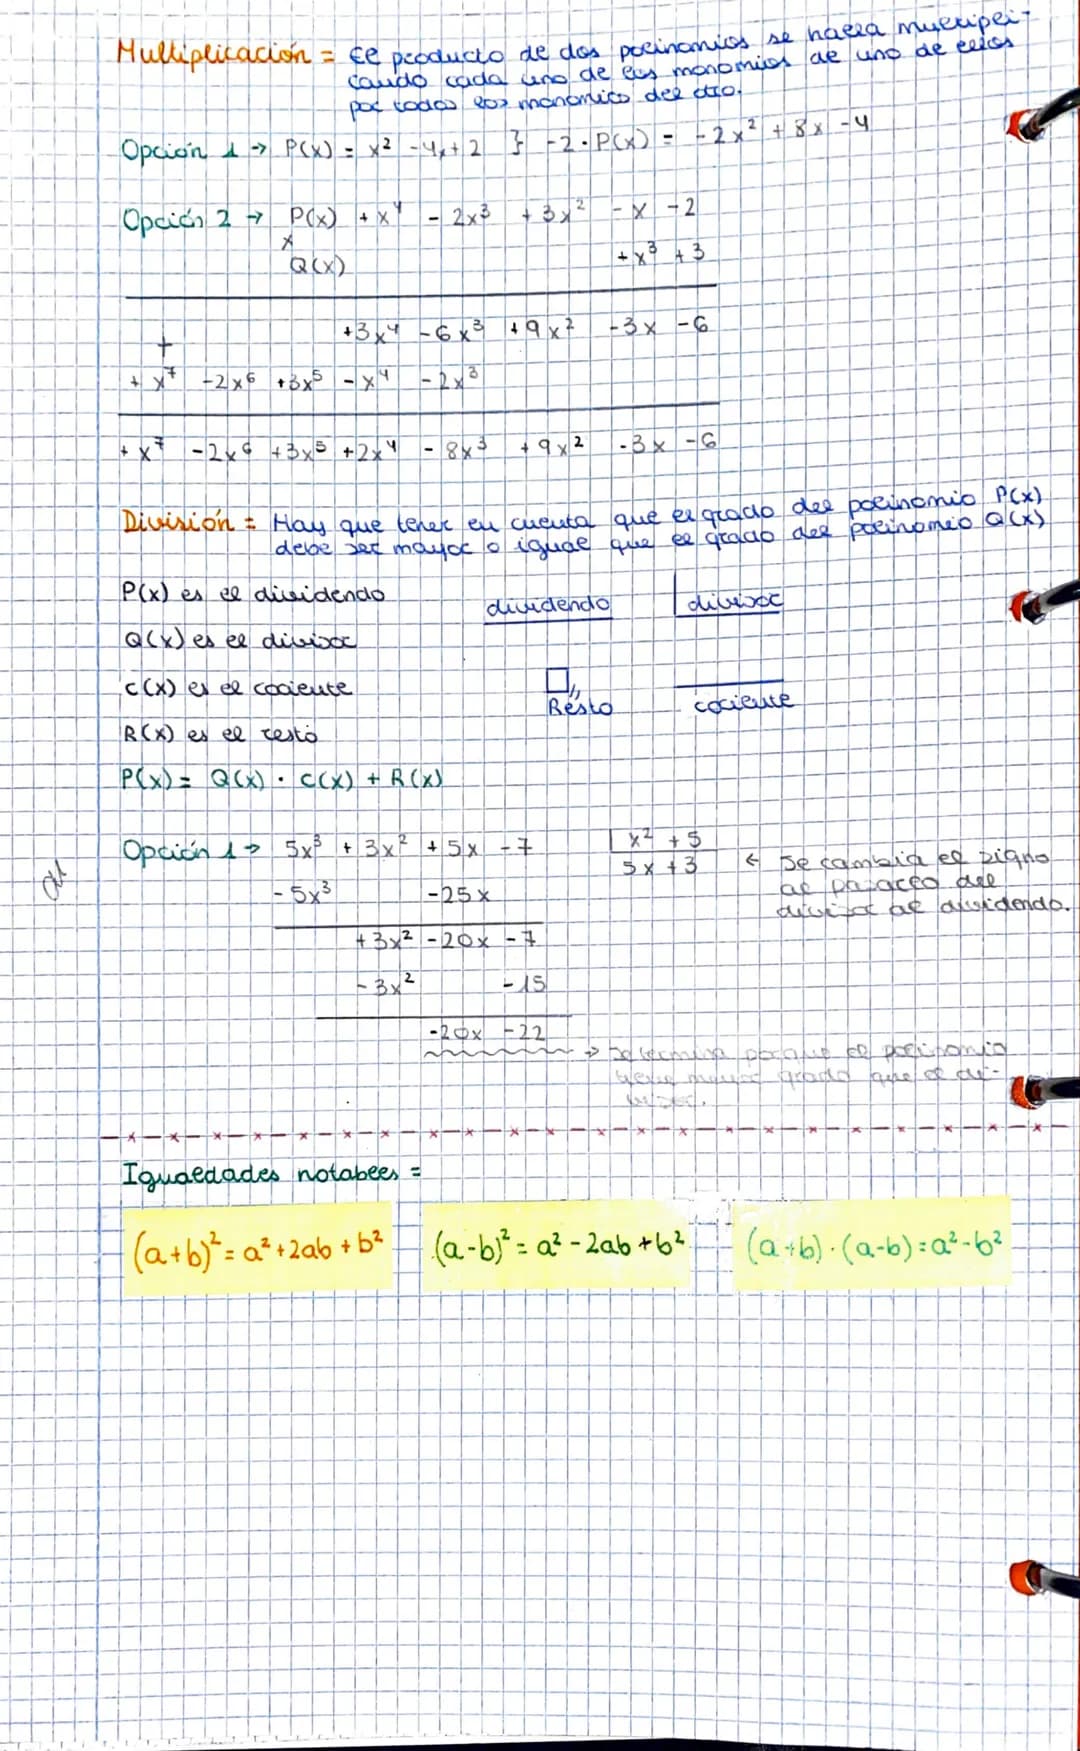 Multiplicación = El producto de dos polinomios se halla multipli-
cando cada uno de los monomios de uno de ellos
por todos los monomios del otro.
Opción 1 → P(x) = x² -4x + 2 } -2 · P(x) = -2x² + 8x -4
Opción 2 → P(x) + x⁴ - 2x³ + 3x² - x - 2
x
Q(x) + x³ + 3
+3x⁴ -6x³ +9x² -3x -6
+
+ x⁷ -2x⁶ +3x⁵ -x⁴ -2x³
+ x⁷ -2x⁶ +3x⁵ +2x⁴ - 8x³ + 9x² -3x -6
División = Hay que tener en cuenta que el grado del polinomio P(x)
debe ser mayor o igual que el grado del polinomio Q(x)
P(x) es el dividendo
dividendo divisor
Q(x) es el divisor
C(x) es el cociente
Resto cociente
R(x) es el resto
P(x) = Q(x) · C(x) + R(x)
Opción 1 → 5x³ + 3x² + 5x -7 x² + 5
5x + 3 ← Se cambia el signo
-5x³ -25x al pasarlo del
divisor al dividendo.
+3x² -20x -7
-3x² -15
-20x -22
→ Se termina porque el polinomio
tiene mayor grado que el di-
visor.
Igualdades notables =
(a+b)² = a² + 2ab + b² (a-b)² = a² - 2ab + b² (a+b) · (a-b) = a² - b²